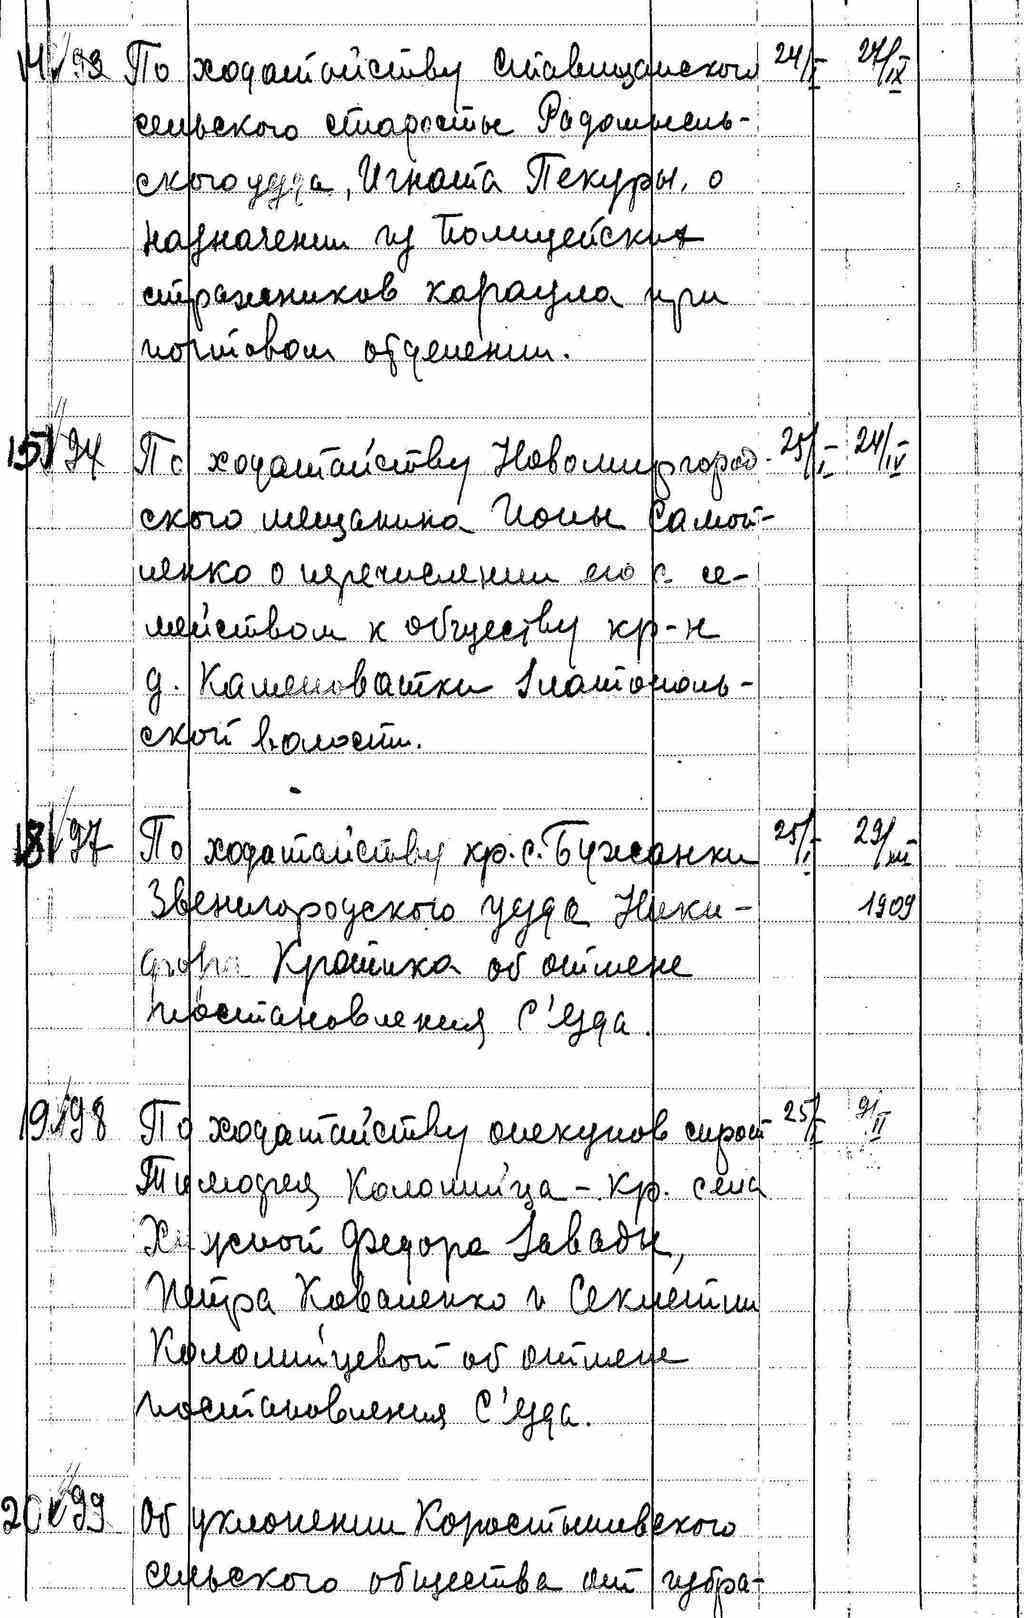 14 93 По ходатайству Ставищанского 24/I 27/IX
сельского старосты Радомысль-
ского уезда, Игната Пекуры, о
назначении из полицейских
стражников караула при
почтовом отделении.
15 94 По ходатайству Новомиргород- 25/I 24/IV
ского мещанина Ионы Самой-
ленко о перечислении его с се-
мейством к обществу кр-н
д. Каменоватки Златополь-
ской волости.
18 97 По ходатайству кр. с. Бужанки 25/I 29/XII
Звенигородского уезда Ники- 1909
фора Кротика об отмене
постановления С'езда.
19 98 По ходатайству опекунов сирот 25/I 9/II
Тимофея Коломийца - кр. села
Хижной Федора Завады,
Петра Коваленко и Секлетии
Коломийцевой об отмене
постановления С'езда.
20 99 Об уклонении Коростышевского
сельского общества от избра-